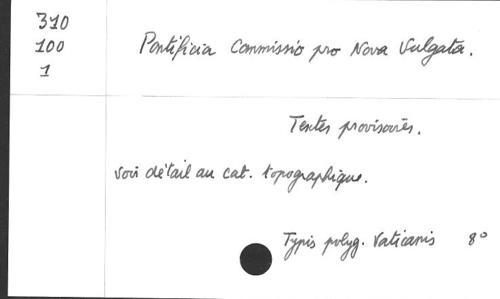 310
100
1
Pontificia Commissio pro Nova Vulgata.
Textes provisoires.
voir détail au cat. topographique.
Typis polyg. Vaticanis 8°